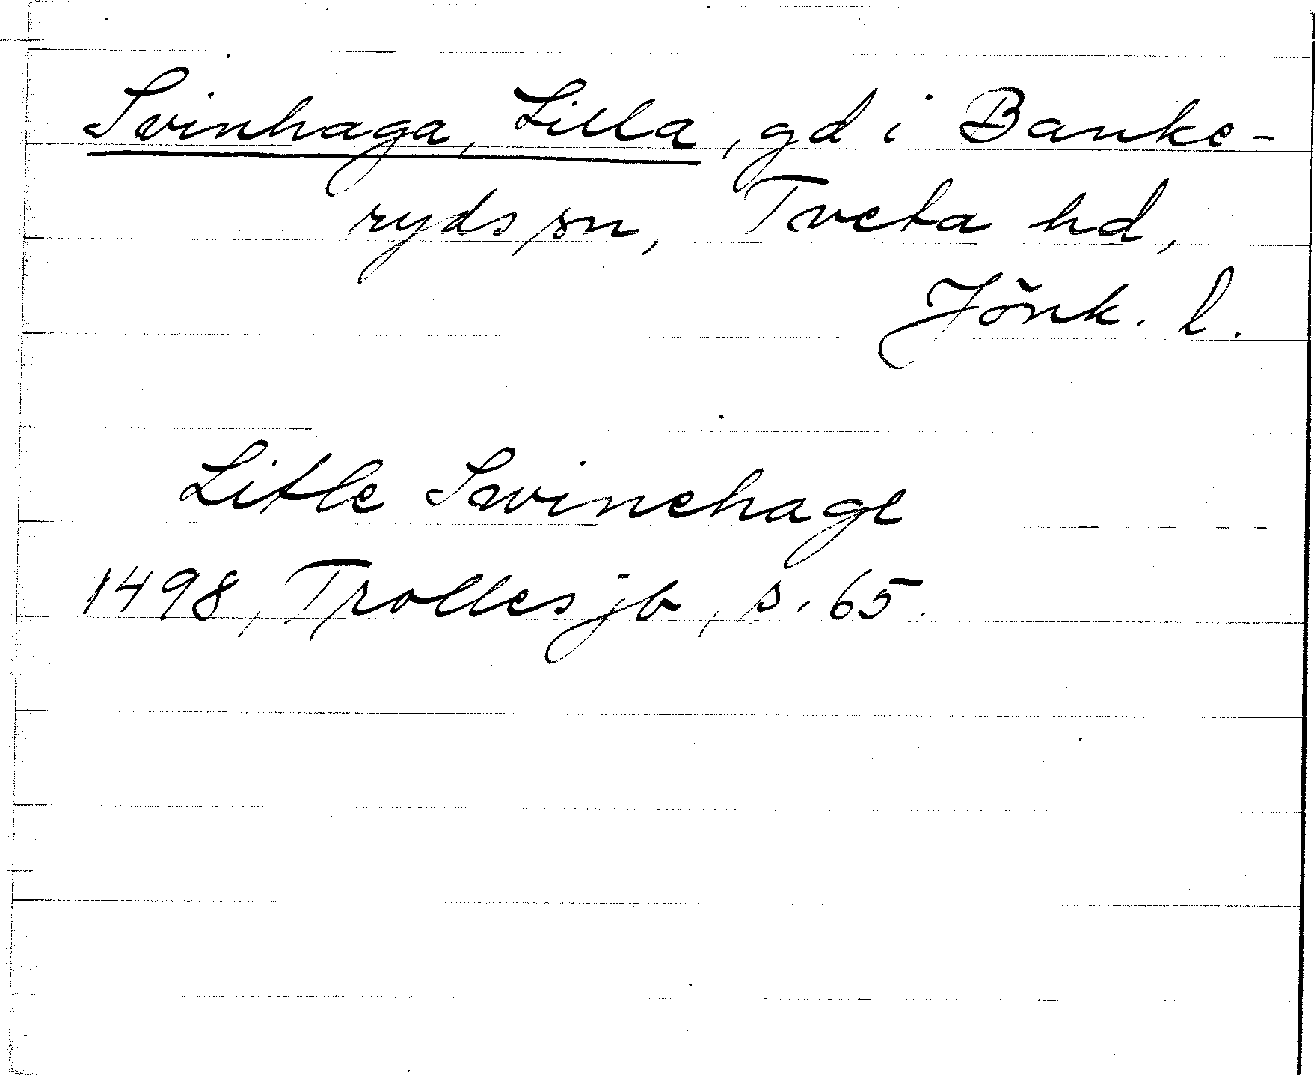 Svinhaga, Lilla, gd i Banke-
ryds sn, Tveta hd,
Jönk. l.
Litle Swinehage
1498, Trolles jb, s. 65.